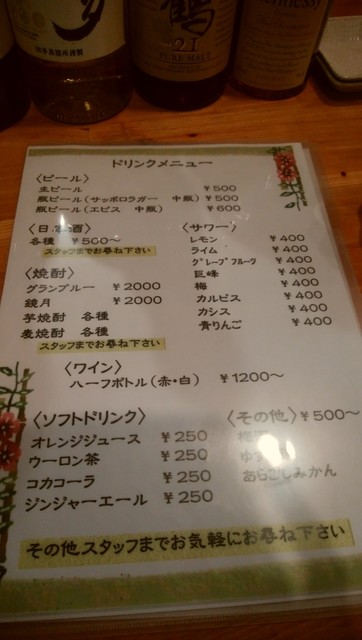 鶴
21
PURE MALT
Hennessy
ドリンクメニュー
〈ビール〉
生ビール ￥500
瓶ビール(サッポロラガー 中瓶) ￥500
瓶ビール(エビス 中瓶) ￥600
〈日本酒〉
各種 ￥500～
スタッフまでお尋ね下さい
〈焼酎〉
グランブルー ￥2000
鏡月 ￥2000
芋焼酎 各種
麦焼酎 各種
スタッフまでお尋ね下さい
〈サワー〉
レモン ￥400
ライム ￥400
グレープフルーツ ￥400
巨峰 ￥400
梅 ￥400
カルピス ￥400
カシス ￥400
青りんご ￥400
〈ワイン〉
ハーフボトル(赤・白) ￥1200～
〈ソフトドリンク〉
オレンジジュース ￥250
ウーロン茶 ￥250
コカコーラ ￥250
ジンジャーエール ￥250
〈その他〉 ￥500～
あらごしみかん
その他、スタッフまでお気軽にお尋ね下さい